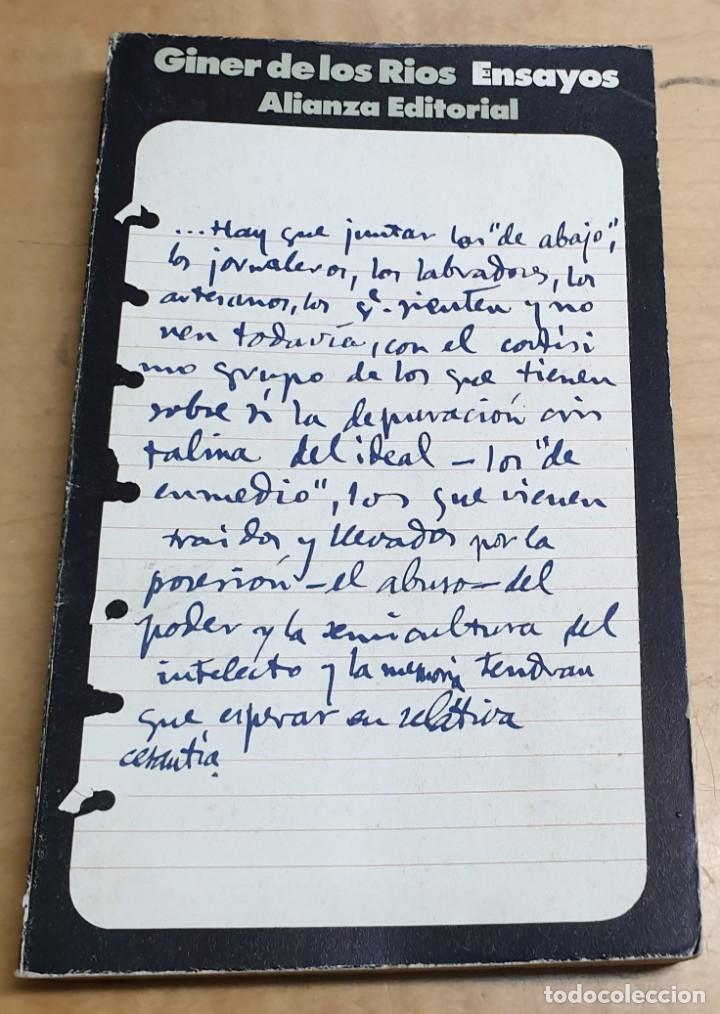 Giner de los Rios Ensayos
Alianza Editorial
...Hay que juntar los "de abajo",
los jornaleros, los labradores, los
artesanos, los q.e sienten y no
ven todavía, con el cortísi
mo grupo de los que tienen
sobre sí la depuración cris
talina del ideal – los "de
enmedio", los que vienen
traidos y llevados por la
posesión – el abuso – del
poder y la semicultura del
intelecto y la memoria tendran
que esperar en relativa
cesantía.
todocoleccion